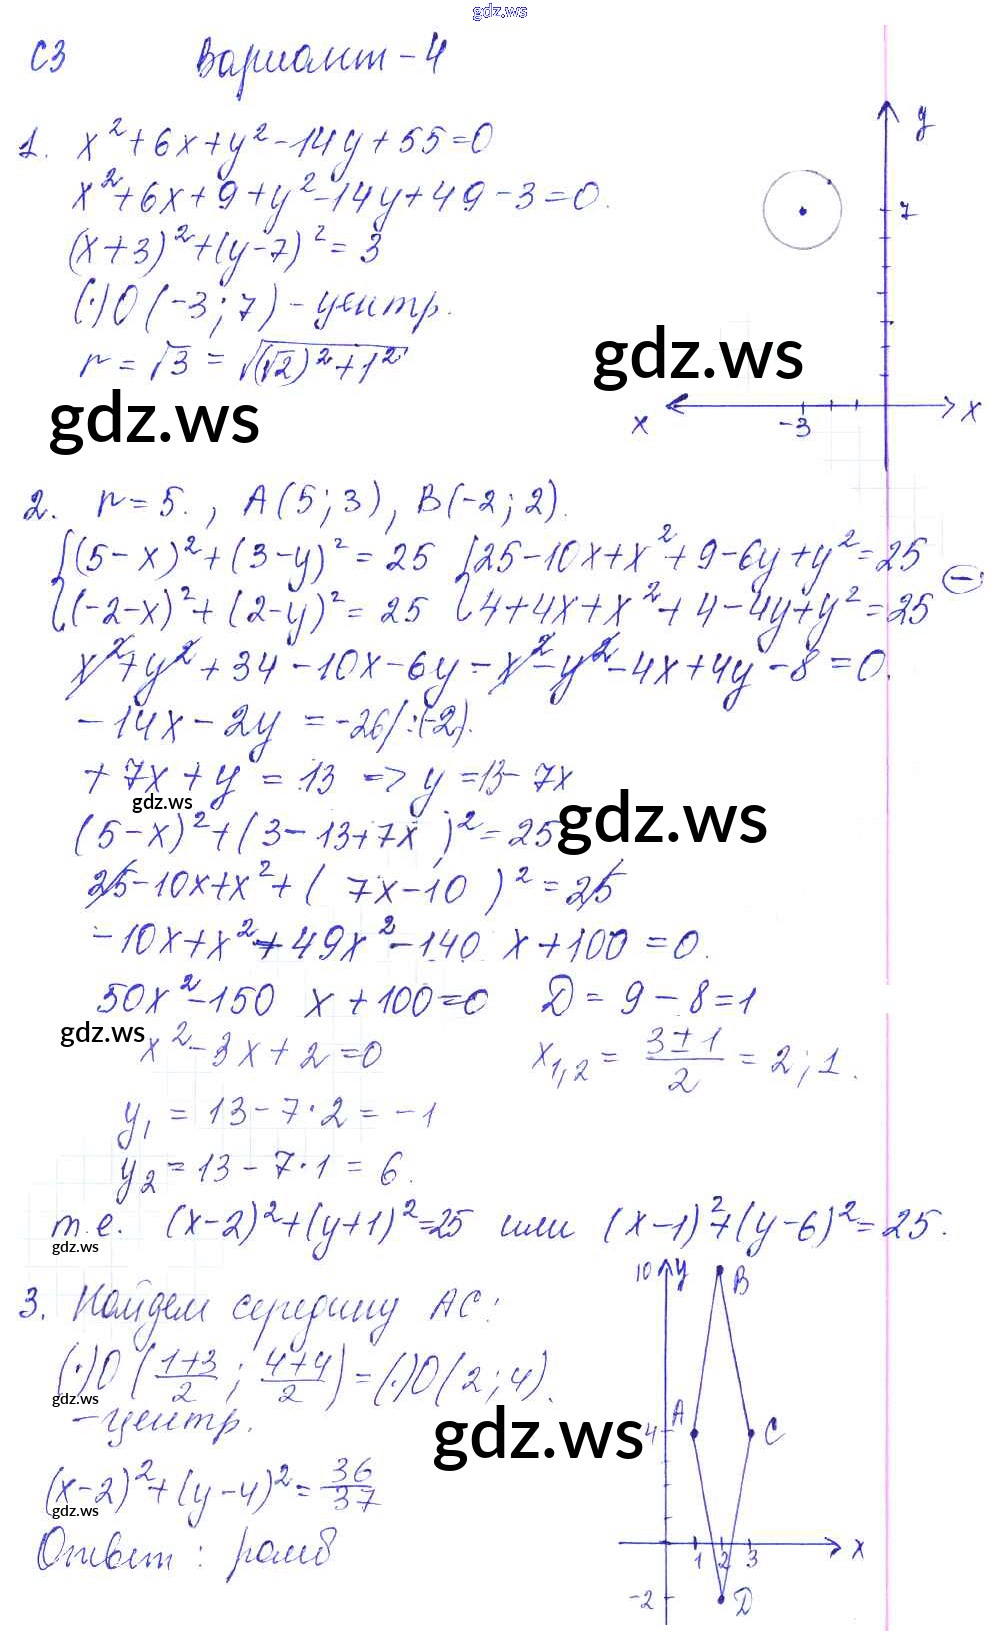 gdz.ws
С3 Вариант-4
1. x²+6x+y²-14y+55=0
x²+6x+9+y²-14y+49-3=0.
(x+3)²+(y-7)²=3
(·)O(-3;7)-центр.
r=√3=√((√2)²+1²)
y
7
-3
x
x
gdz.ws
gdz.ws
2. r=5., A(5;3), B(-2;2).
{(5-x)²+(3-y)²=25 {25-10x+x²+9-6y+y²=25
{(-2-x)²+(2-y)²=25 {4+4x+x²+4-4y+y²=25 (-);
x²+y²+34-10x-6y-x²-y²-4x+4y-8=0.
-14x-2y=-26/:(-2).
+7x+y=13 => y=13-7x
gdz.ws
gdz.ws
(5-x)²+(3-13+7x)²=25
25-10x+x²+(7x-10)²=25
-10x+x²+49x²-140x+100=0.
50x²-150x+100=0 D=9-8=1
gdz.ws
x²-3x+2=0 x₁,₂=(3±1)/2=2;1.
y₁=13-7·2=-1
y₂=13-7·1=6.
т.е. (x-2)²+(y+1)²=25 или (x-1)²+(y-6)²=25.
gdz.ws
3. Найдем середину AC:
(·)O((1+3)/2;(4+4)/2)=(·)O(2;4).
gdz.ws
-центр.
gdz.ws
(x-2)²+(y-4)²=36/37
gdz.ws
Ответ: ромб
10 y B
A
4 C
1 2 3 x
-2 D